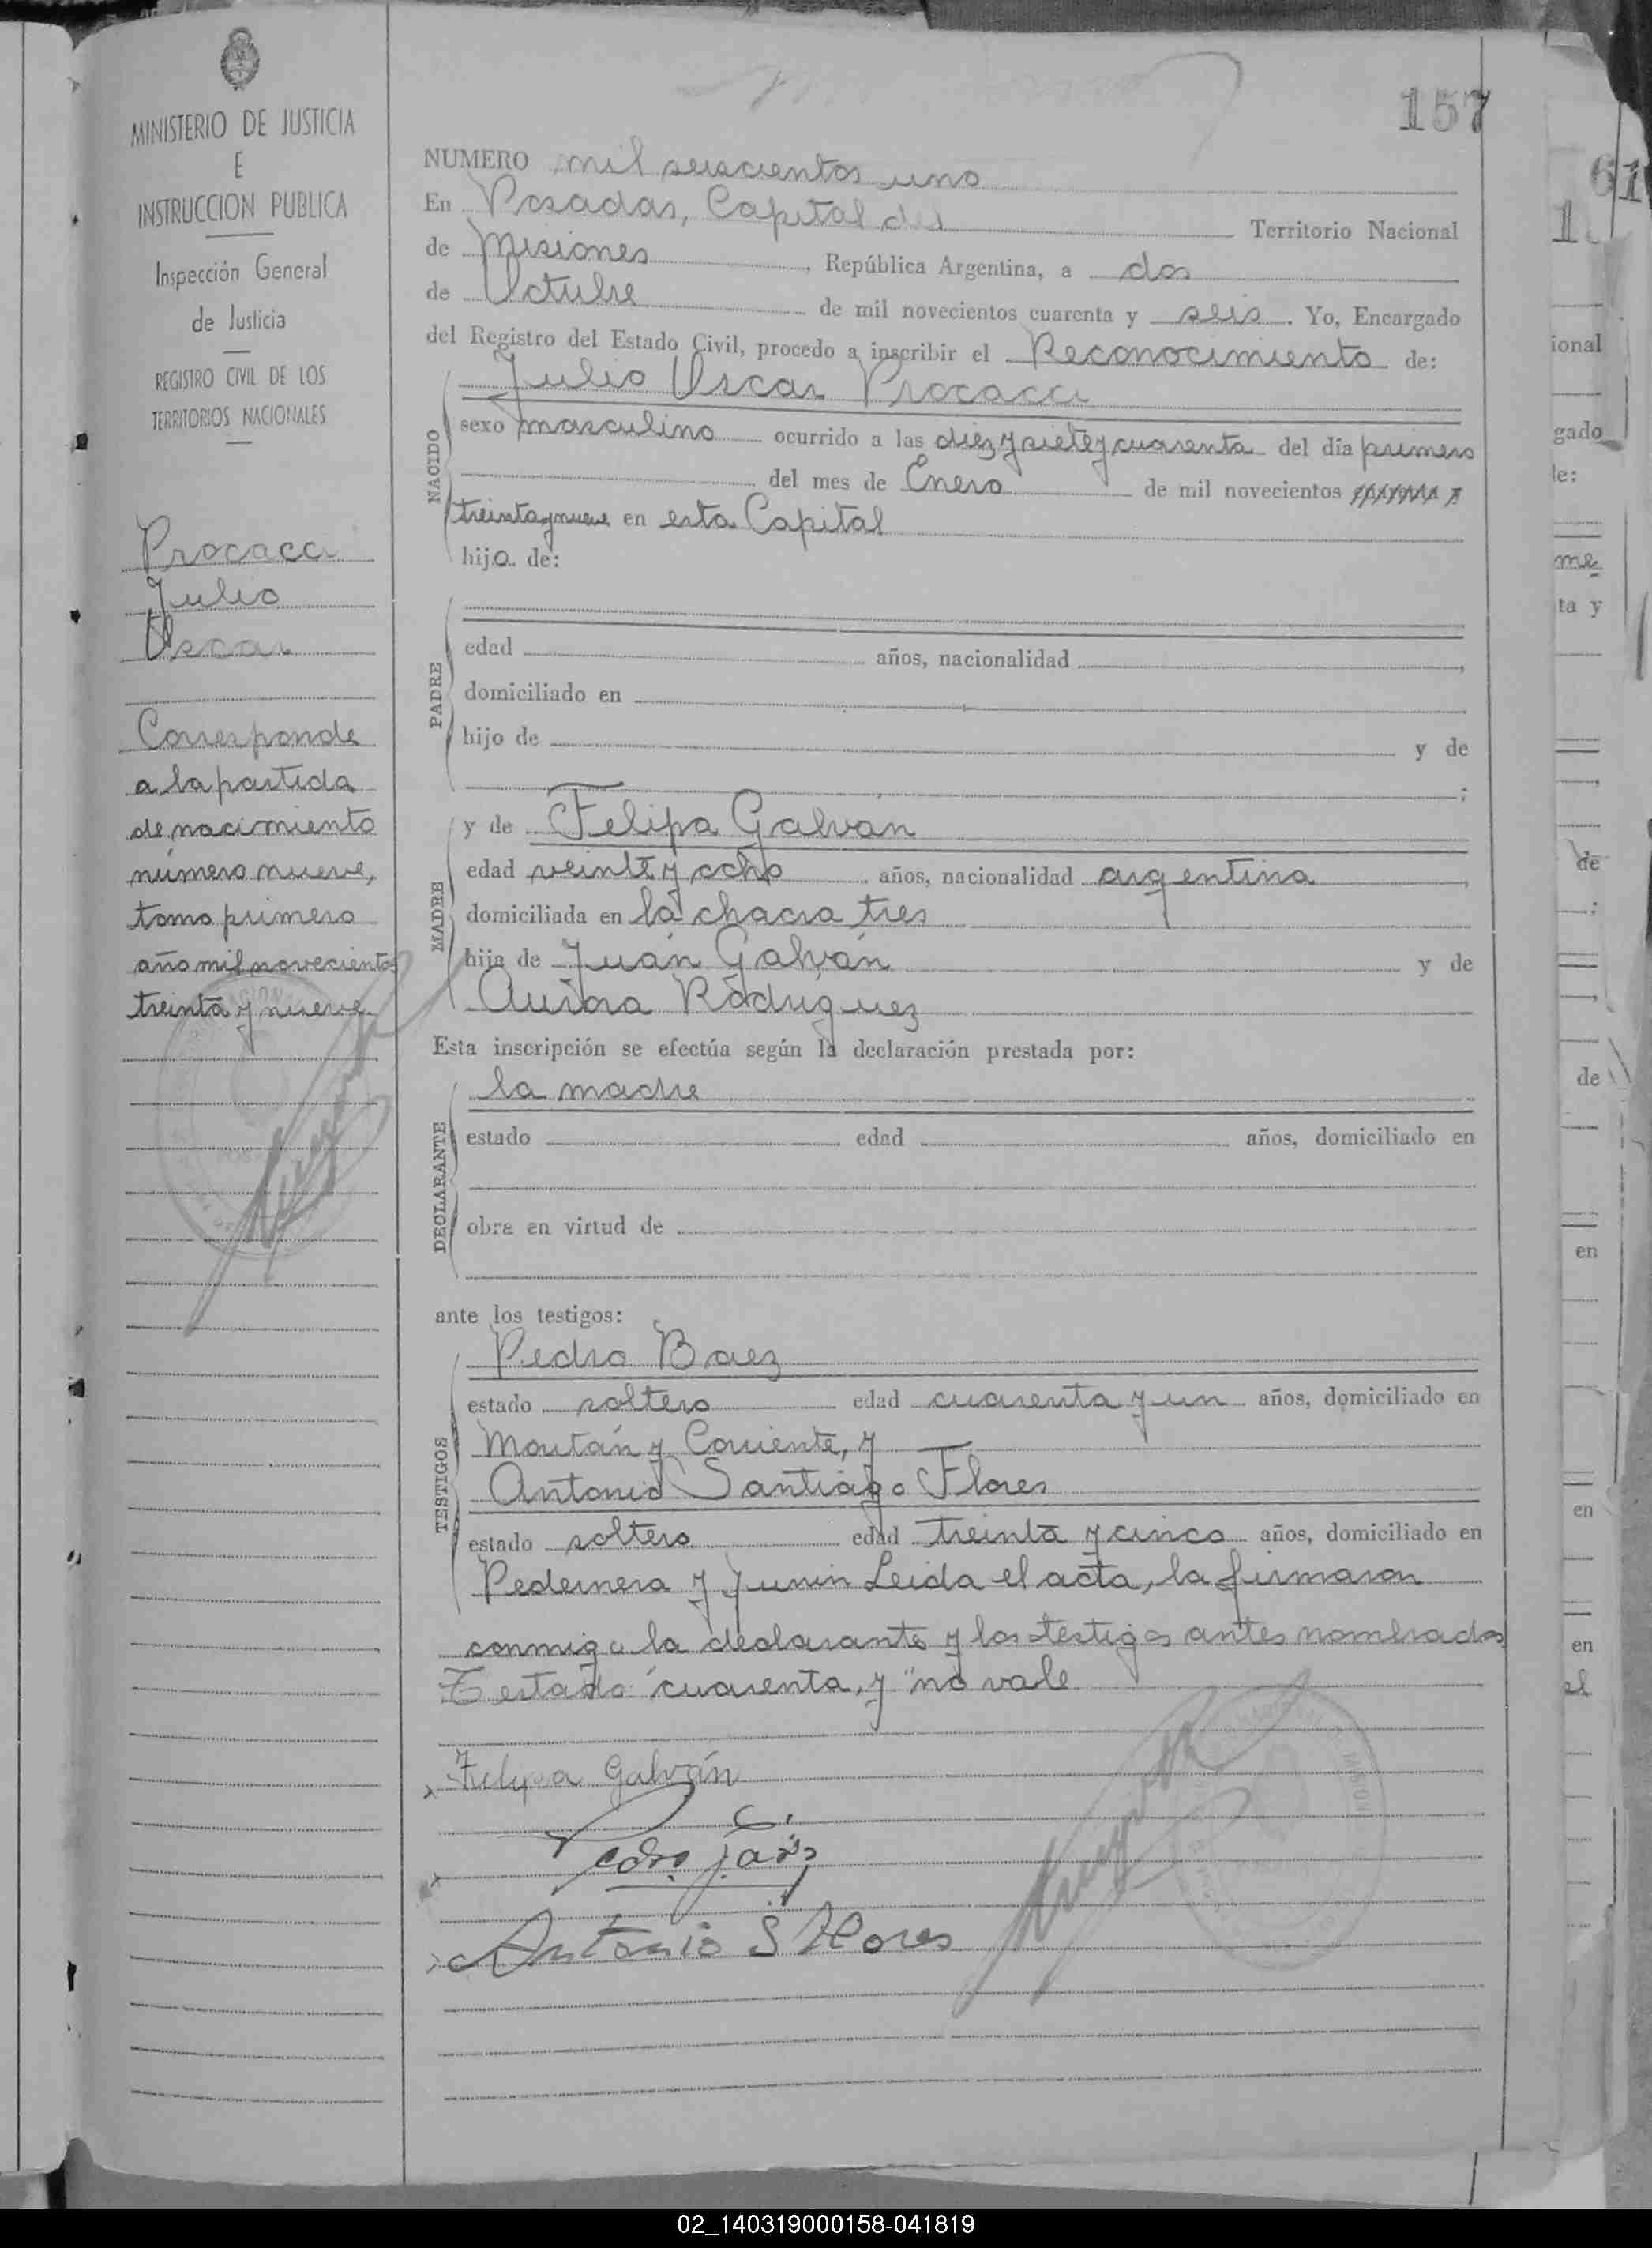 MINISTERIO DE JUSTICIA
E
INSTRUCCION PUBLICA
Inspección General
de Justicia
REGISTRO CIVIL DE LOS
TERRITORIOS NACIONALES
Procacci
Julio
Oscar
Corresponde
a la partida
de nacimiento
número nueve,
tomo primero
año mil novecientos
treinta y nueve.
157
NUMERO mil seiscientos uno
En Posadas, Capital del Territorio Nacional
de Misiones, República Argentina, a dos
de Octubre de mil novecientos cuarenta y seis. Yo, Encargado
del Registro del Estado Civil, procedo a inscribir el Reconocimiento de:
Julio Oscar Procacci
NACIDO
sexo masculino ocurrido a las diez y siete y cuarenta del día primero
del mes de Enero de mil novecientos cuarenta y
treinta y nueve en esta Capital
hijo de:
PADRE
edad años, nacionalidad ,
domiciliado en
hijo de y de
;
MADRE
y de Felipa Galvan
edad veinte y ocho años, nacionalidad argentina,
domiciliada en la chacra tres
hija de Juán Galván y de
Aurora Rodriguez
Esta inscripción se efectúa según la declaración prestada por:
la madre
DECLARANTE
estado edad años, domiciliado en
obra en virtud de
ante los testigos:
Pedro Baez
TESTIGOS
estado soltero edad cuarenta y un años, domiciliado en
y Corriente, y
Antonio Santiago Flores
estado soltero edad treinta y cinco años, domiciliado en
Pedernera y Junin Leida el acta, la firmaron
conmigo la declarante y los testigos antes nombrados
Testado "cuarenta, y" no vale
Felipa Galván
Antonio S Flores
61
1
ional
gado
le:
me
ta y
de
;
de
en
en
en
el
02_140319000158-041819